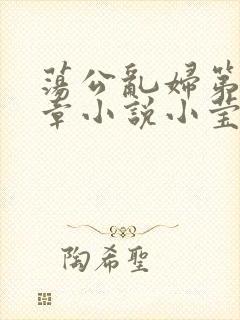 蕩公亂婦第
章小說小莹
陶希聖